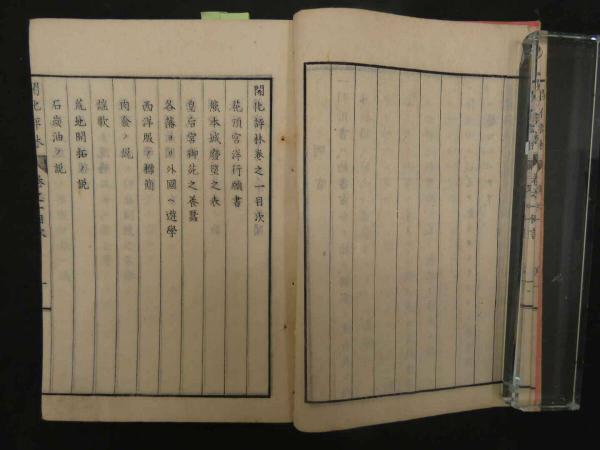 開化評林巻之一目次
花頂宮洋行願書
熊本城廢墮之表
皇后宮御苑之養蚕
各藩ヨリ外國ヘ遊學
西洋服ノ
肉食ノ説
荒地開拓ノ説
石炭油ノ説
開化評林 巻之一目次 一